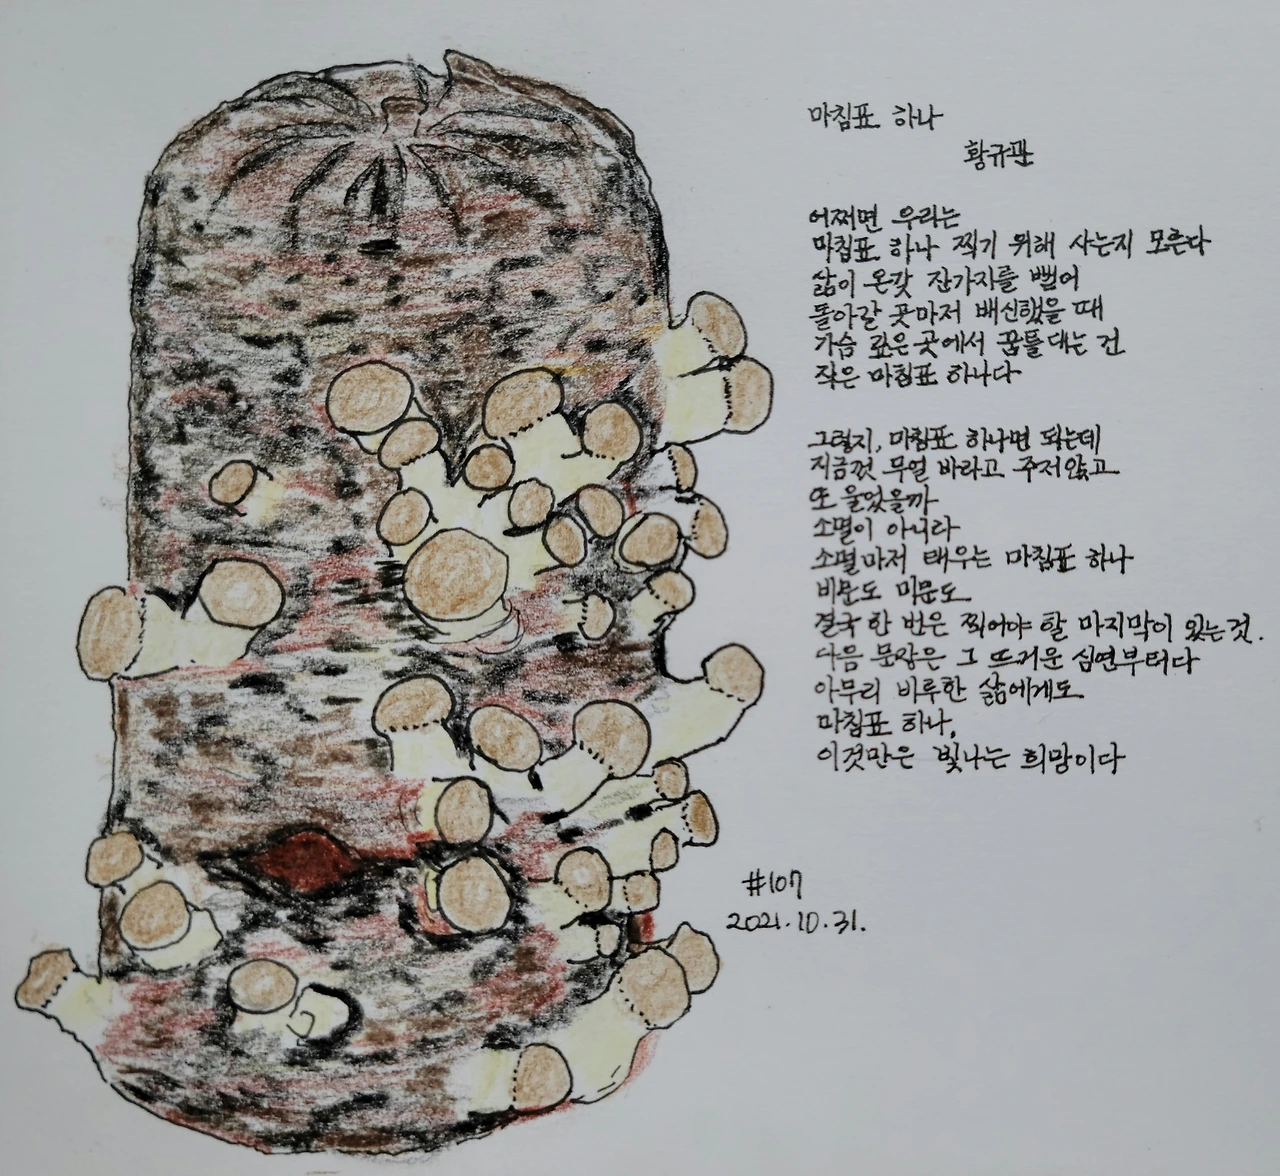 마침표 하나
황규관
어쩌면 우리는
마침표 하나 찍기 위해 사는지 모른다
삶이 온갖 잔가지를 뻗어
돌아갈 곳마저 배신했을 때
가슴 깊은 곳에서 꿈틀대는 건
작은 마침표 하나다
그렇지, 마침표 하나면 되는데
지금껏 무얼 바라고 주저앉고
또 울었을까
소멸이 아니라
소멸마저 태우는 마침표 하나
비문도 미문도
결국 한 번은 찍어야 할 마지막이 있는 것.
다음 문장은 그 뜨거운 심연부터다
아무리 비루한 삶에게도
마침표 하나,
이것만은 빛나는 희망이다
#107
2021.10.31.